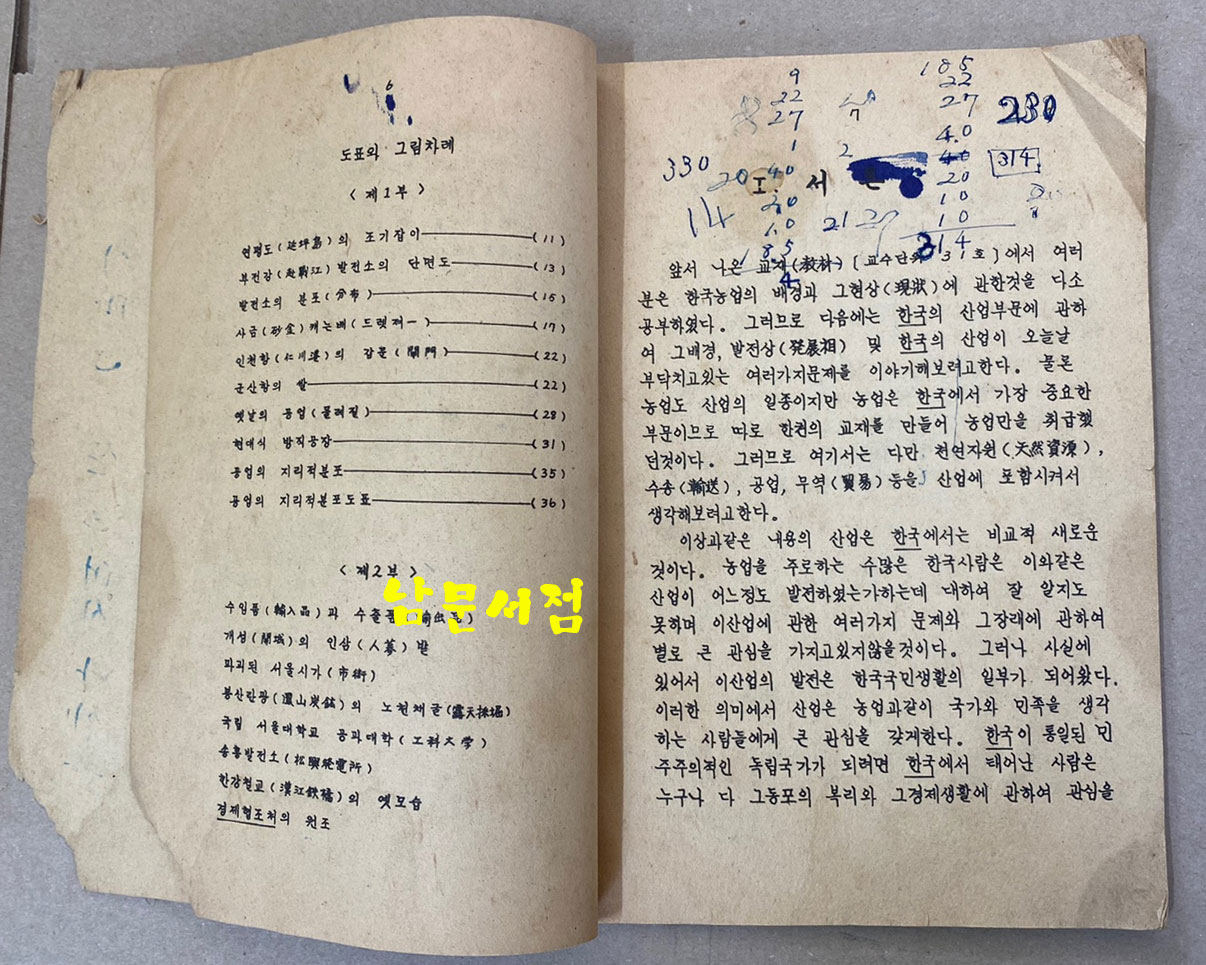 6
도표와 그림차례
< 제1부 >
연평도(延坪島)의 조기잡이 (11)
부전강(赴戰江)발전소의 단면도 (13)
발전소의 분포(分布) (15)
사금(砂金)캐는배(드렛저ー) (17)
인천항(仁川港)의 갑문(閘門) (22)
군산항의 쌀 (22)
옛날의 공업(물레질) (28)
현대식 방직공장 (31)
공업의 지리적분포 (35)
공업의 지리적분포도표 (36)
< 제2부 >
수입품(輸入品)과 수출품(輸出品)
개성(開城)의 인삼(人蔘)밭
파괴된 서울시가(市街)
봉산탄광(鳳山炭鉱)의 노천채굴(露天採堀)
국립 서울대학교 공과대학(工科大学)
송흥발전소(松興発電所)
한강철교(漢江鉄橋)의 옛모습
경제협조처의 원조
남문서점
9
22
27
1
40
20
10
185
330
20
114
2
212
185
22
27
40
40
20
10
10
314
230
314
I. 서
앞서 나온 교재(教材)[교수단위 31호]에서 여러
분은 한국농업의 배경과 그현상(現狀)에 관한것을 다소
공부하였다. 그러므로 다음에는 한국의 산업부문에 관하
여 그배경, 발전상(発展相) 및 한국의 산업이 오늘날
부닥치고있는 여러가지문제를 이야기해보려고한다. 물론
농업도 산업의 일종이지만 농업은 한국에서 가장 중요한
부문이므로 따로 한권의 교재를 만들어 농업만을 취급했
던것이다. 그러므로 여기서는 다만 천연자원(天然資源),
수송(輸送), 공업, 무역(貿易)등을 산업에 포함시켜서
생각해보려고한다.
이상과같은 내용의 산업은 한국에서는 비교적 새로운
것이다. 농업을 주로하는 수많은 한국사람은 이와같은
산업이 어느정도 발전하였는가하는데 대하여 잘 알지도
못하며 이산업에 관한 여러가지 문제와 그장래에 관하여
별로 큰 관심을 가지고있지않을것이다. 그러나 사실에
있어서 이산업의 발전은 한국국민생활의 일부가 되어왔다.
이러한 의미에서 산업은 농업과같이 국가와 민족을 생각
하는 사람들에게 큰 관심을 갖게한다. 한국이 통일된 민
주주의적인 독립국가가 되려면 한국에서 태어난 사람은
누구나 다 그동포의 복리와 그경제생활에 관하여 관심을